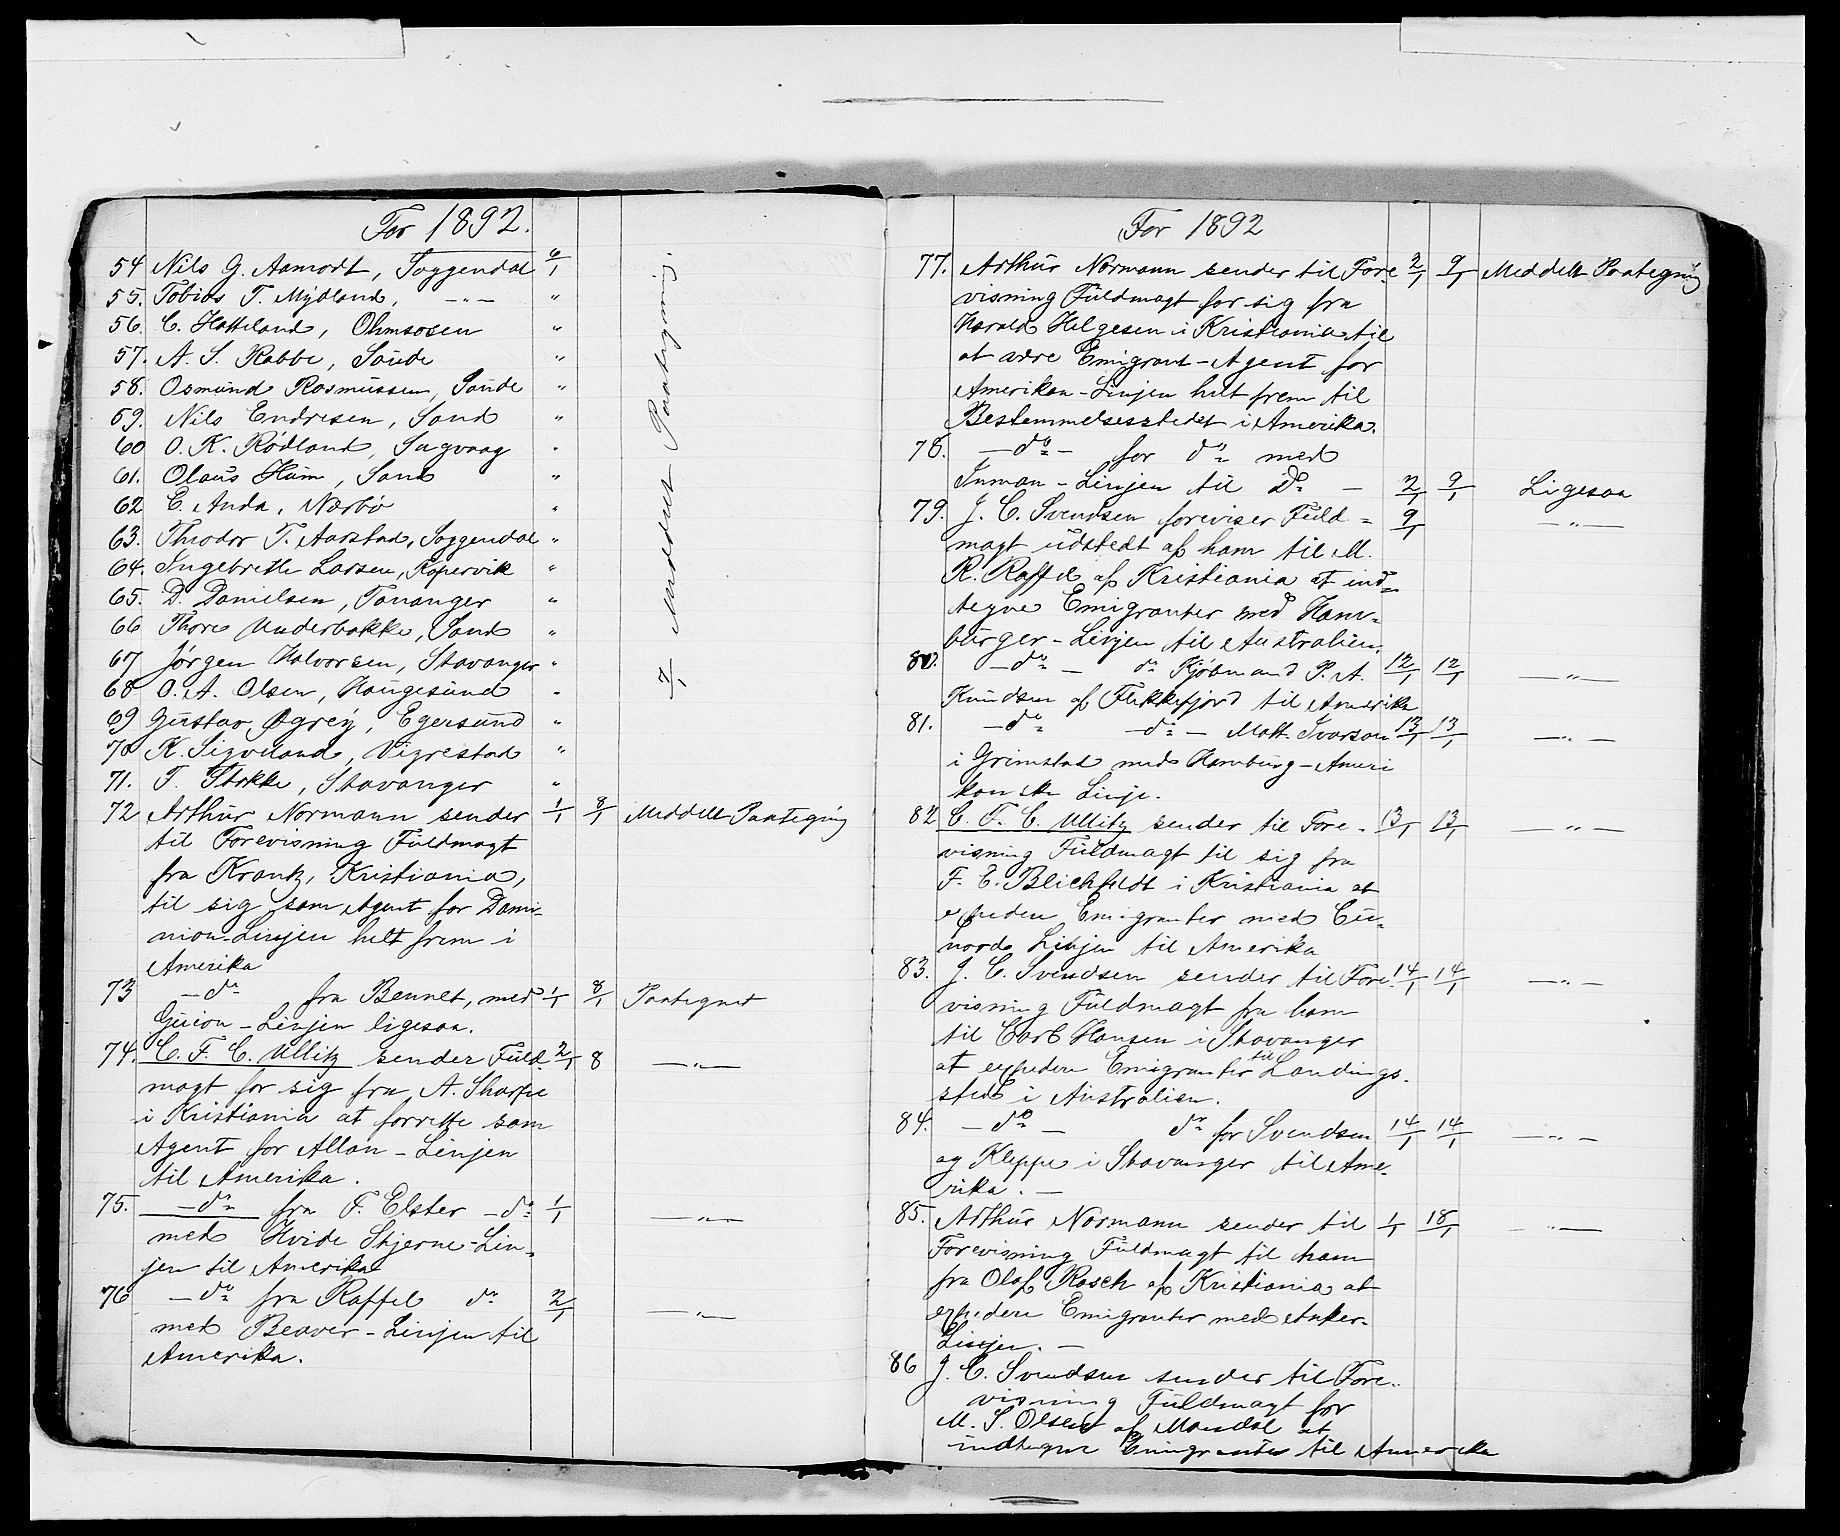 For 1892.
54 Nils G. Aamodt, Soggendal 6/1
55. Tobias T. Mydland, -„- „
56. C. Hatteland, Ohmsosen „
57. A. S. Rabbe, Saude „
58. Osmund Rasmussen, Saude „
59. Nils Endresen, Sand „
60 O. K. Rødland, Sagvaag „
61. Olaus Hum, Sand „
62 E. Anda, Nærbø „
63. Theodor T. Aarstad, Soggendal „
64. Ingebrette Larsen, Kopervik „
65. D. Danielsen, Tananger „
66 Thore Underbakke, Sand „
67 Jørgen Halvorsen, Stavanger „
68 O. A. Olsen, Haugesund „
69 Gustav Øgrey, Egersund „
70 K. Sigveland, Vigrestad „
71. T. Stokke, Stavanger „
7/1 Meddelt Paategning.
72 Arthur Normann sender 1/1 8/1 Meddelt Paategning
til Forevisning Fuldmagt
fra Krantz, Kristiania,
til sig som Agent for Domi-
nion-Linjen helt frem i
Amerika
73 - do fra Bennet, med 1/1 8/1 Paategnet
Guion-Linjen ligesaa.
74. C. F. C. Ullitz sender Fuld- 2/1 8 -„-
magt for sig fra A. Sharpe
i Kristiania at forrette som
Agent for Allan-Linjen
til Amerika.
75. - do fra F. Elster - do 1/1 -„-
med Hvide Stjerne-Lin-
jen til Amerika
76 - do fra Raffel do 2/1 -„-
med Beaver-Linjen til
Amerika.
For 1892
77. Arthur Normann sender til Fore- 2/1 9/1 Meddelt Paategning
visning Fuldmagt for sig fra
Harald Helgesen i Kristiania til
at være Emigrant-Agent for
Amerikan-Linjen helt frem til
Bestemmelsesstedet i Amerika.
78. - do - for do med
Inman-Linjen til Do - 2/1 9/1 Ligesaa
79. J. C. Svendsen foreviser Fuld- 9/1 -„-
magt udstedt af ham til M.
R. Raffel af Kristiania at ind-
tegne Emigranter med Ham-
burger-Linjen til Australien.
80. - do - do Kjøbmand P. A. 12/1 12/1 -„-
Knudsen af Flekkefjord til Amerika
81. - do - do - Matt. Ivarson 13/1 13/1 -„-
i Grimstad med Hamburg-Ameri
kanske Linje.
82 C. F. C. Ullitz sender til Fore- 13/1 13/1 -„-
visning Fuldmagt til sig fra
F. E. Blichfeldt i Kristiania at
expedere Emigranter med Cu-
nards Linjen til Amerika
83. J. C. Svendsen sender til Fore 14/1 14/1 -„-
visning Fuldmagt fra ham
til Carl Hansen i Stavanger
at expedere Emigranter til Landings-
sted i Australien.
84. - do - do for Svendsen 14/1 14/1 -„-
og Kleppe i Stavanger til Ame-
rika. -
85. Arthur Normann sender til 1/1 18/1 -„-
Forevisning Fuldmagt til ham
fra Olaf Rasch af Kristiania at
expedere Emigranter med Anker-
Linjen. -
86 J. C. Svendsen sender til Fore-
visning Fuldmagt for
M. S. Olsen af Mandal at
indtegne Emigranter til Amerika